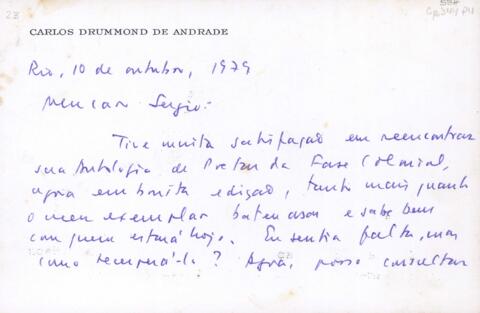 28
CARLOS DRUMMOND DE ANDRADE
Rio, 10 de outubro, 1979
Meu caro Sergio:
Tive muita satisfação em reencontrar
sua Antologia de Poetas da Fase Colonial,
agora em bonita edição, tanto mais quanto
o meu exemplar bateu asas e sabe Deus
com quem estará hoje. Eu sentia falta, mas
como recuperá-lo? Agora, posso consultar